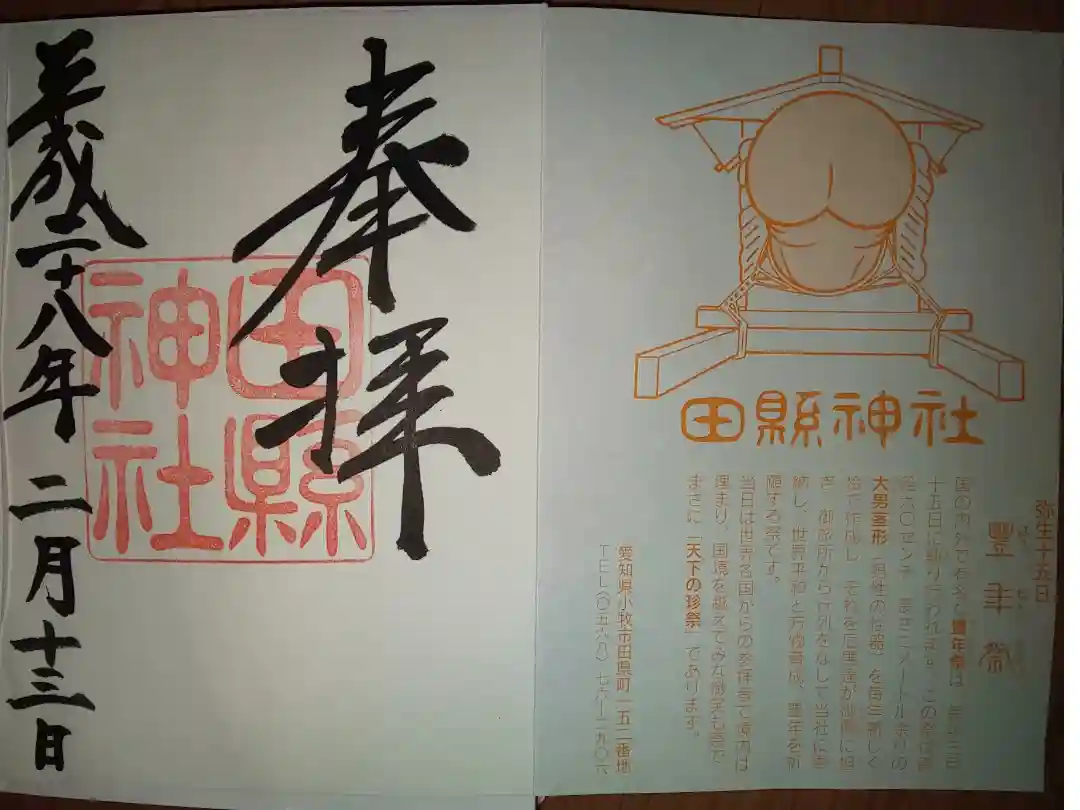 奉拝
田縣神社
平成二十八年 二月十三日
田縣神社
弥生十五日
豐年祭
国の内外で有名な豊年祭は 毎年三月
十五日に執り行われます。この祭は直
径六〇センチ 長さ二メートル余りの
大男茎形（男性の性器）を毎年新しく
桧で作成し それを厄男達が御輿に担
ぎ、御旅所から行列をなして当社に奉
納し、世界平和と万物育成、豊年を祈
願する祭です。
当日は世界各国からの参拝者で境内は
埋まり、国境を越えてみな御笑も喜で
まさに「天下の珍祭」であります。
愛知県小牧市田県町一五二番地
TEL(〇五六八)七六ー二九〇六